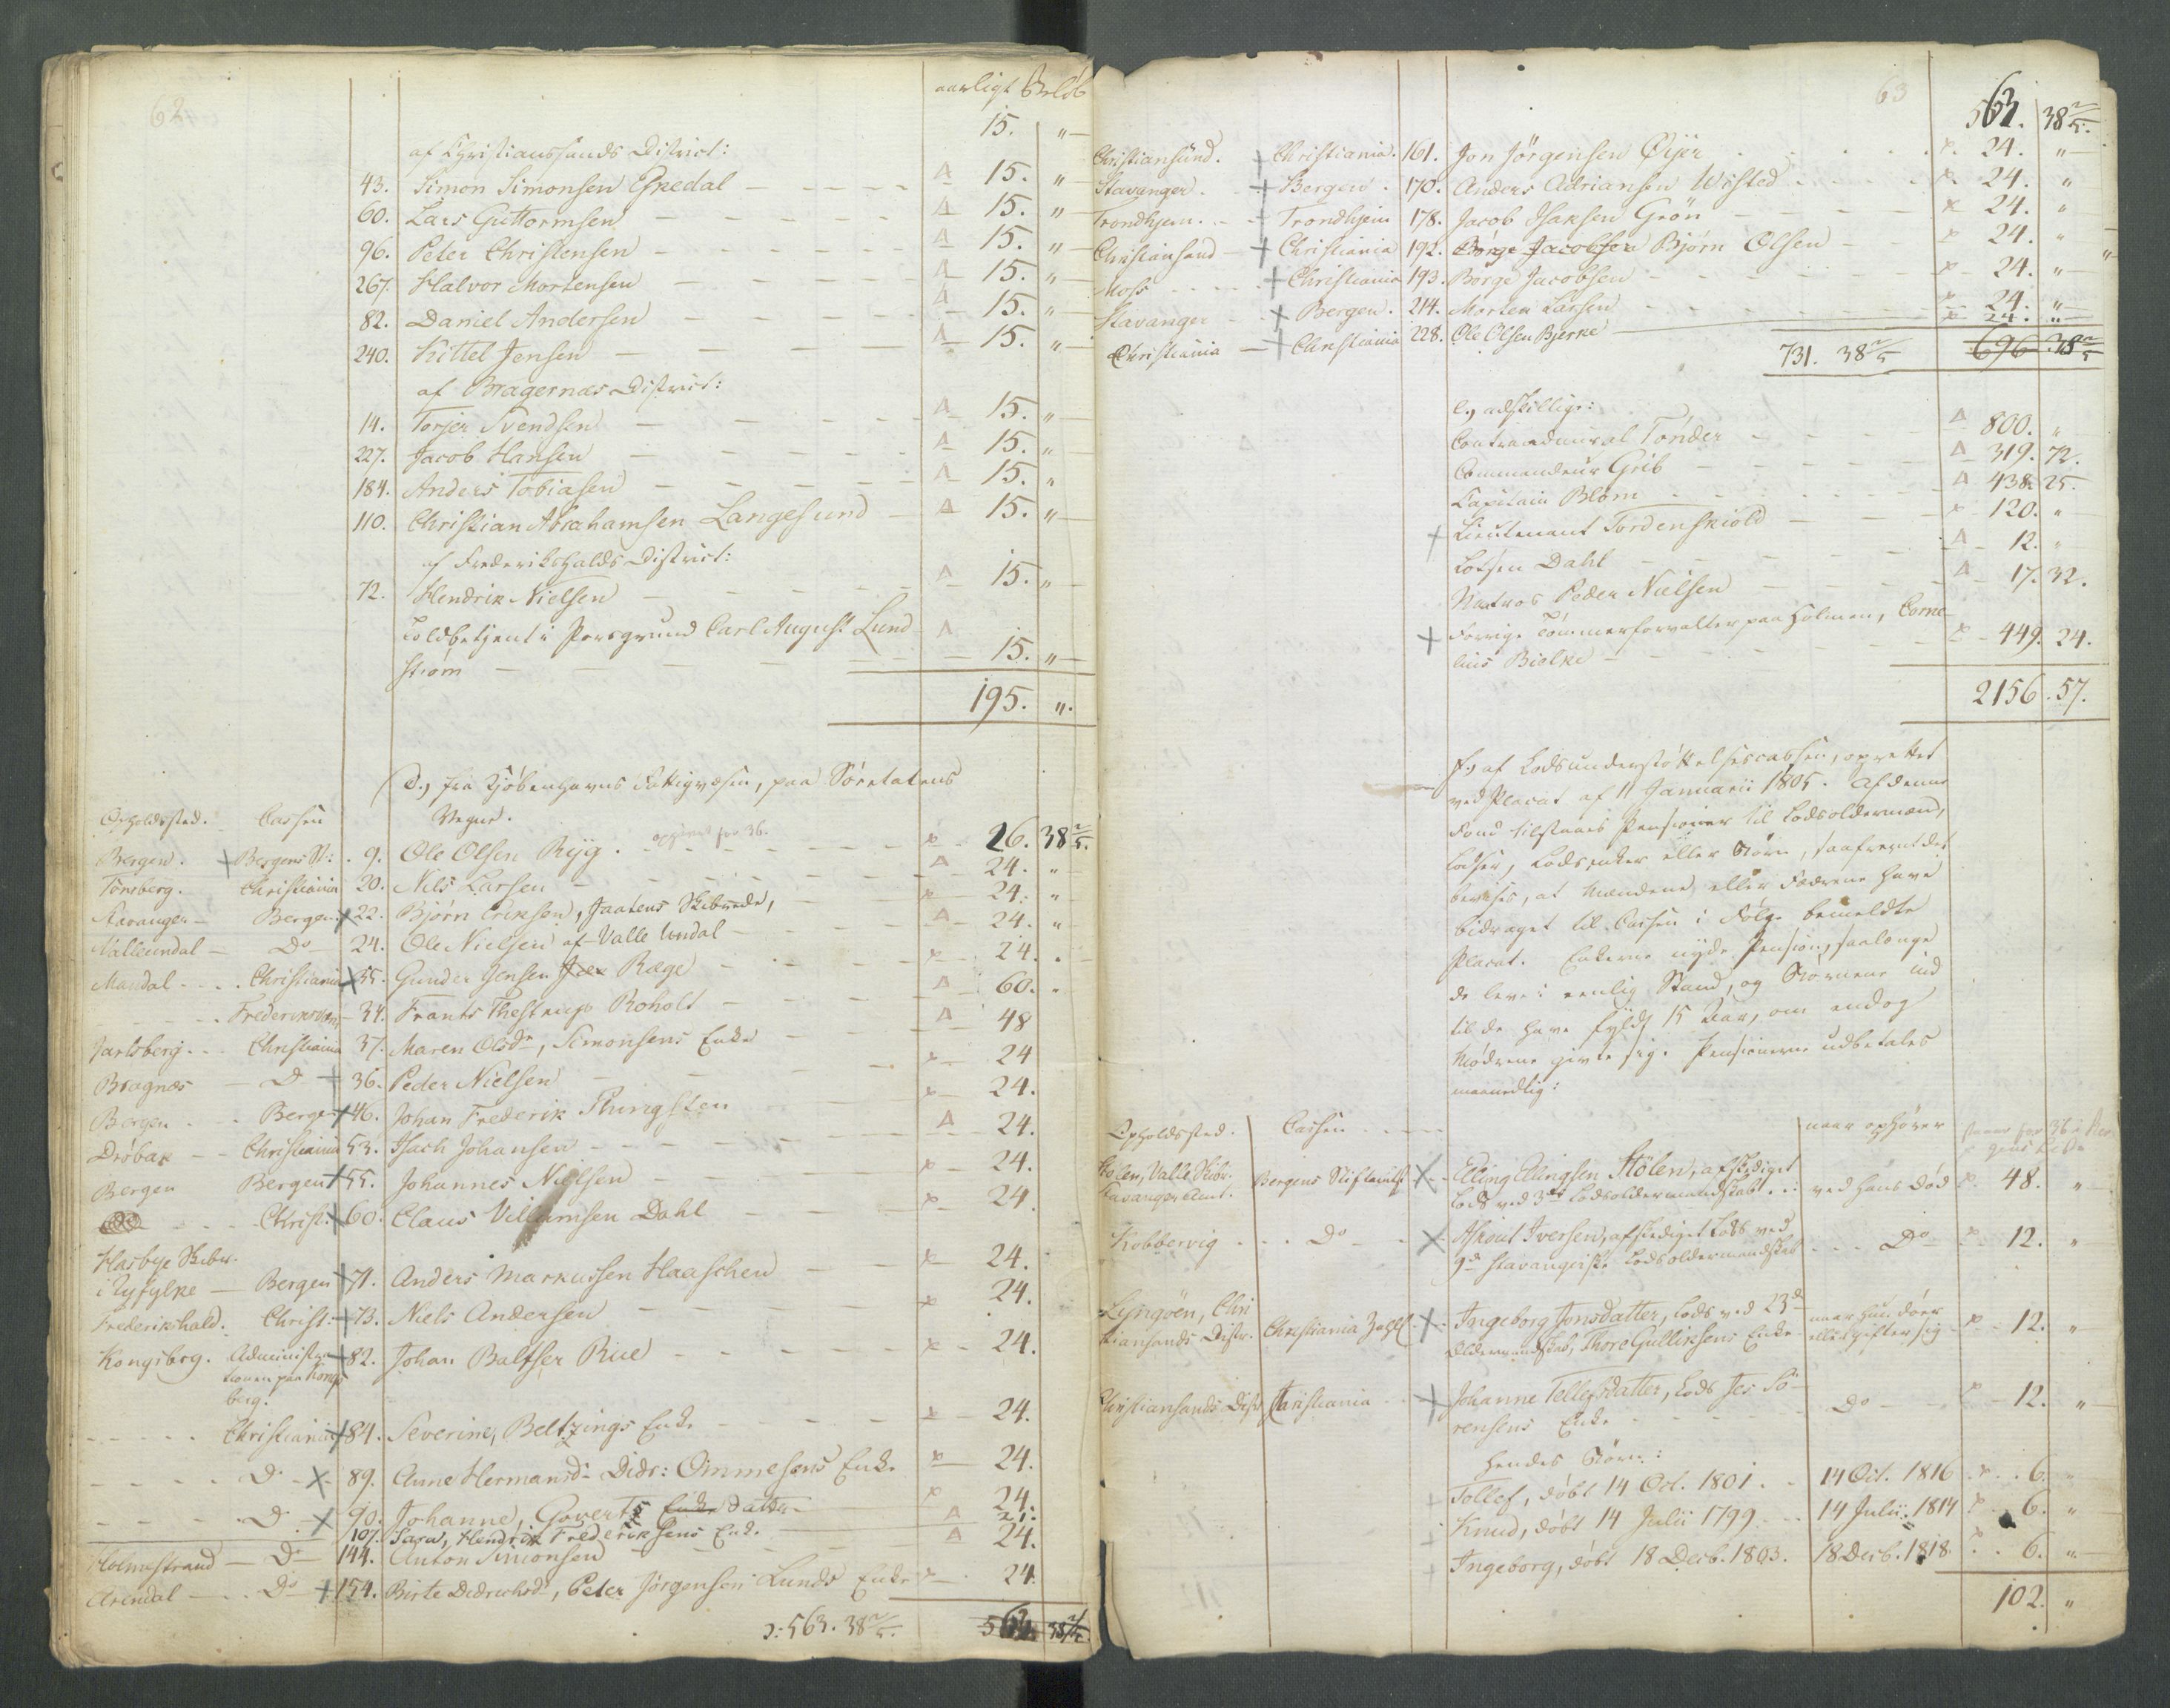 62
aarligt Beløb
15. "
af Christianssands District:
43. Simon Simonsen Eskedal A 15. "
60. Lars Guttormsen A 15. "
96. Peter Christensen A 15. "
267. Halvor Mortensen A 15. "
82. Daniel Andersen A 15. "
240. Kittel Jensen A 15. "
af Bragernæs District:
14. Torjer Svendsen A 15. "
227. Jacob Hansen A 15. "
184. Anders Tobiasen A 15. "
110. Christian Abrahamsen Langesund A 15. "
af Frederikshalds District:
72. Hendrik Nielsen A 15. "
Toldbetjent i Porsgrund Carl August Lund
strøm A 15. "
195. "
d., fra Kjøbenhavns Fattigvæsen, paa Søretatens
Vegne.
Opholdssted. Cassen
Bergen. + Bergens St: 9. Ole Olsen Ryg. x 26. 38 2/5.
Tønsberg. Christiania 20. Nils Larsen A 24. "
Stavanger Bergen + 22. Bjørn Eriksen, Jaatens Skibrede, x 24. "
Valleundal Do 24. Ole Nielsen af Valle Undal A 24. "
Mandal Christiania + 35. Gunder Jensen Ræge x 24. "
Frederiksværn 34. Frants Thestrup Roholt A 60. "
Jarlsberg Christiania 37. Maren Olsdr, Simonsens Enke A 48
Bragnæs D + 36. Peder Nielsen x 24
Bergen Bergen + 46. Johan Frederik Thingsten x 24.
Drøbak Christiania 53. Isach Johansen A 24.
Bergen Bergen + 55. Johannes Nielsen x 24.
Christ: + 60. Claus Villumsen Dahl x 24.
Hasbye Skibr.
i Ryfylke Bergen + 71. Anders Markussen Haaschen x 24.
Frederikshald. Christ: + 73. Niels Andersen x 24.
Kongsberg. Administra + 82. Johan Baltser Rue x 24.
tionen paa Kongs
berg.
Christiania + 84. Severine, Beltzings Enke x 24.
Do + 89. Anne Hermansdr Didr: Ommesens Enke x 24.
Do + 90. Johanne, Goverts Enke Datter x 24.
107. Sara, Hendrik Frederiksens Enke A 24.
Holmestrand Do 144. Anton Simonsen A 24.
Arendal Do + 154. Birte Didrichsdr, Peter Jørgensen Lunds Enke x 24.
563. 38 2/5.
63
563. 38 2/5.
Christiansund. + Christiania. 161. Jon Jørgensen Øyer x 24. "
Stavanger. + Bergen. 170. Anders Adriansen Wisted x 24. "
Trondhjem. Trondhjem 178. Jacob Isaksen Grøn x 24. "
Christiansand + Christiania 192. Børge Jacobsen Bjørn Olsen x 24. "
Moss + Christiania 193. Børge Jacobsen x 24. "
Stavanger + Bergen. 214. Morten Larsen x 24. "
Christiania + Christiania 228. Ole Olsen Bjerke x 24. "
731. 38 2/5 696 38 2/5
e., adskillige:
Contraadmiral Tønder A 800. "
Commandeur Grib A 319. 72.
Capitain Blom A 438. 25.
+ Lieutenant Tordenskiold x 120. "
Lodsen Dahl A 12. "
Matros Peder Nielsen A 17. 32.
+ Forrige Tømmerforvalter paa Holmen, Corne
lius Bielke x 449. 24.
2156. 57.
f., af Lodsunderstøttelsescassen, oprettet
ved Placat af 11 Januarii 1805. Af denne
Fond tilstaaes Pensioner til Lodsoldermænd,
Lodser, Lodsenker eller Børn, saafremt det
bevises, at Mændene eller Fædrene have
bidraget til Cassen i Følge bemeldte
Placat. Enkerne nyde Pension, saalænge
de leve i eenlig Stand, og Børnene ind
til de have fyldt 15 Aar, om endog
Mødrene givte sig. Pensionerne udbetales
maanedlig:
Opholdssted. Cassen naar ophører
Stølen, Valle Skibr. Bergens Stiftamt + Elling Ellingsen Stølen, afskediget
Stavanger Amt. Lods ved 3de Lodsoldermandskab ved hans Død x 48. "
Kobbervig Do + Askout Iversen, afskediget Lods ved
9de Stavangerske Lodsoldermandskab Do x 12. "
Lyngøen, Chri Christiania Zahlk. + Ingeborg Jonsdatter, Lods ved 23de naar hun døer
stiansands Distr. Oldermandskab, Thore Gulliksens Enke eller gifter sig x 12. "
Christiansands Distr Christiania + Johanne Tellefsdatter, Lods Jes Sø
rensens Enke Do x 12. "
hendes Børn:
+ Tollef, døbt 14 Oct. 1801. 14 Oct. 1816 x 6. "
+ Knud, døbt 14 Julii 1799 14 Julii 1814 x 6. "
+ Ingeborg, døbt 18 Decb. 1803. 18 Decb. 1818. x 6. "
102. "